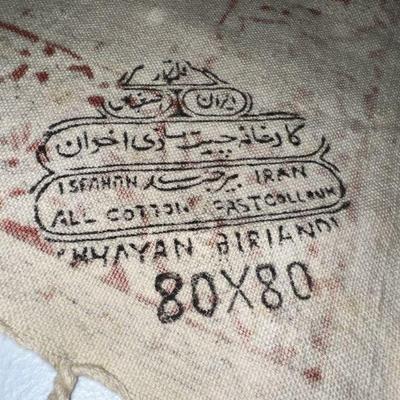 ایران اصفهان
کارخانه چیت سازی اخوان
ISFAHAN بیرجندی IRAN
ALL COTTON FASTCOLLOUR
KHAYAN BIRIANDI
80X80